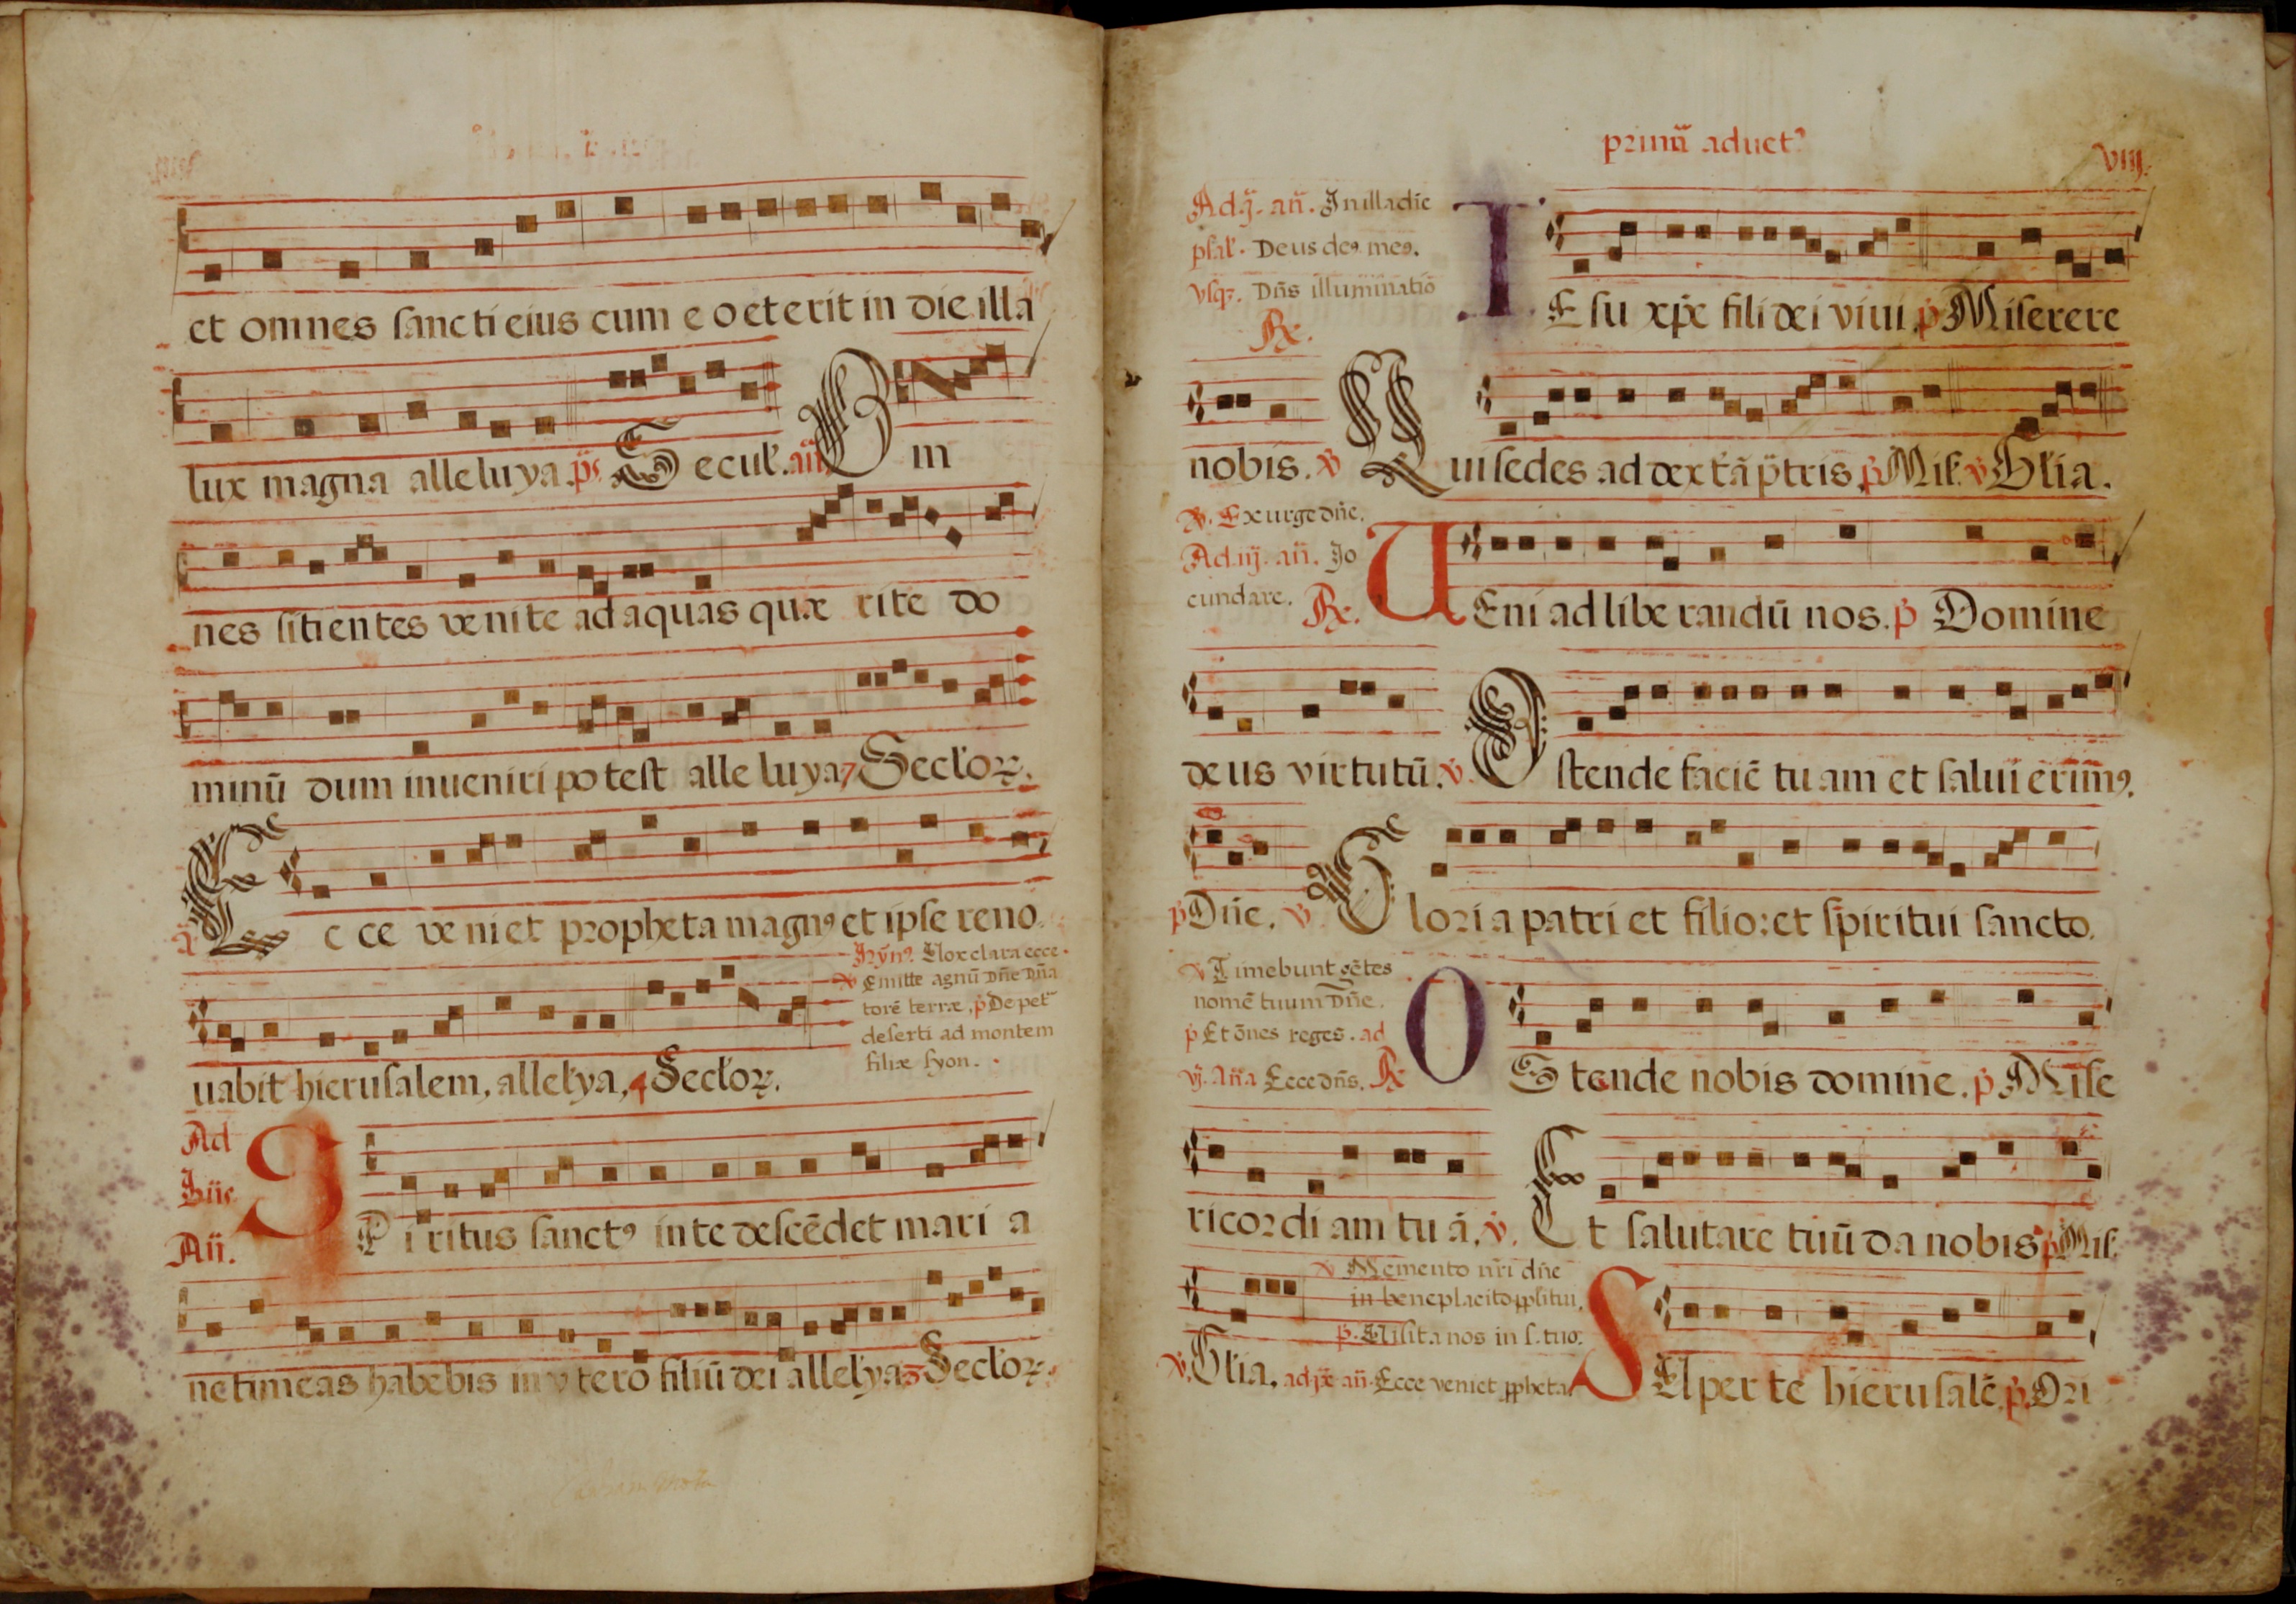 et omnes sancti eius cum e o et erit in die illa
lux magna alleluya. ps Secul'. añ Om
nes sitientes venite ad aquas quæ rite do
minũ dum inueniri potest alleluya 7 Seclor̃.
Ecce veniet propheta magn9 et ipse reno
uabit hierusalem, allel'ya, 4 Seclor̃.
Hỹn9. Vox clara ecce.
℣ Emitte agnũ Dñe Dña
torẽ terræ, p̃ De pet
deserti ad montem
filiæ syon.
Ad
Añ.
SPiritus sanct9 in te descẽdet mari a
ne timeas habebis in vtero filiũ dei allel'ya Seclor̃.
primũ aduet9
viij.
Ad. añ. In illa die
psal'. Deus de9 me9.
vsq3. Dñs illuminatiõ
℟.
IEsu xp̃e fili dei viui. p̃ Miserere
nobis. ℣ Qui sedes ad dextã p̃tris, p̃ Mis. ℣ Gl'ia.
℣. Exurge dñe.
Ad iij. añ. Jo
cundare. ℟.
UEni ad libe randũ nos. p̃ Domine
deus virtutũ. ℣. Ostende faciẽ tuam et salui erim9.
p̃ Dñe. ℣. Gloria patri et filio: et spiritui sancto.
℣ Timebunt gẽtes
nomẽ tuum Dñe.
p̃ Et õnes reges. ad
vj. aña Ecce dñs. ℟
OStende nobis domine. p̃ Mise
ricordi am tu ã. ℣. Et salutare tuũ da nobis p̃ Mis.
℣ Memento nr̃i dñe
in beneplacito pp̃li tui.
p. Uisita nos in s. tuo.
℣. Gl'ia. ad añ. Ecce veniet pp̃heta.
SUper te hierusalẽ. p̃. Ori